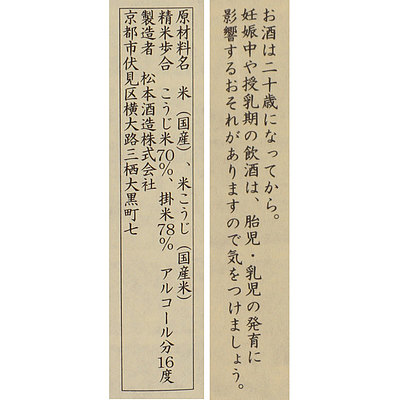 お酒は二十歳になってから。
妊娠中や授乳期の飲酒は、胎児・乳児の発育に
影響するおそれがありますので気をつけましょう。
原材料名　米（国産）、米こうじ（国産米）
精米歩合　こうじ米70％、掛米78％　アルコール分16度
製造者　松本酒造株式会社
京都市伏見区横大路三栖大黒町七